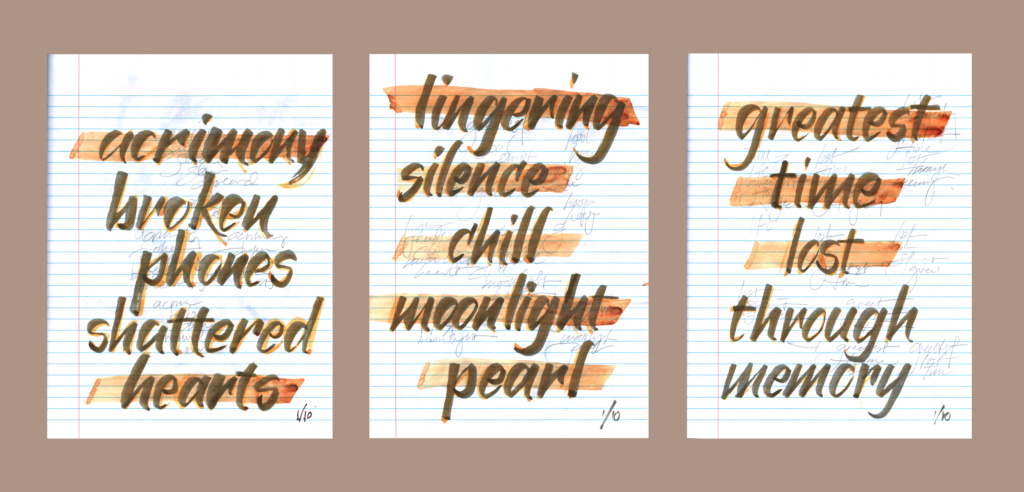 acrimony
broken
phones
shattered
hearts
1/10
lingering
silence
chill
moonlight
pearl
1/10
greatest
time
lost
through
memory
1/10